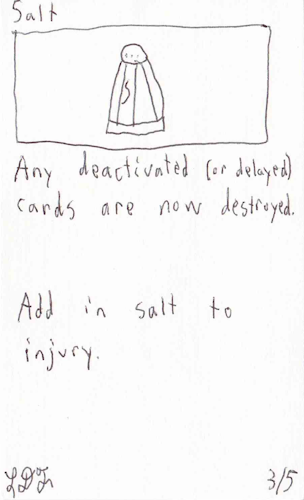 Salt
S
Any deactivated (or delayed)
cards are now destroyed.
Add in salt to
injury.
3/5